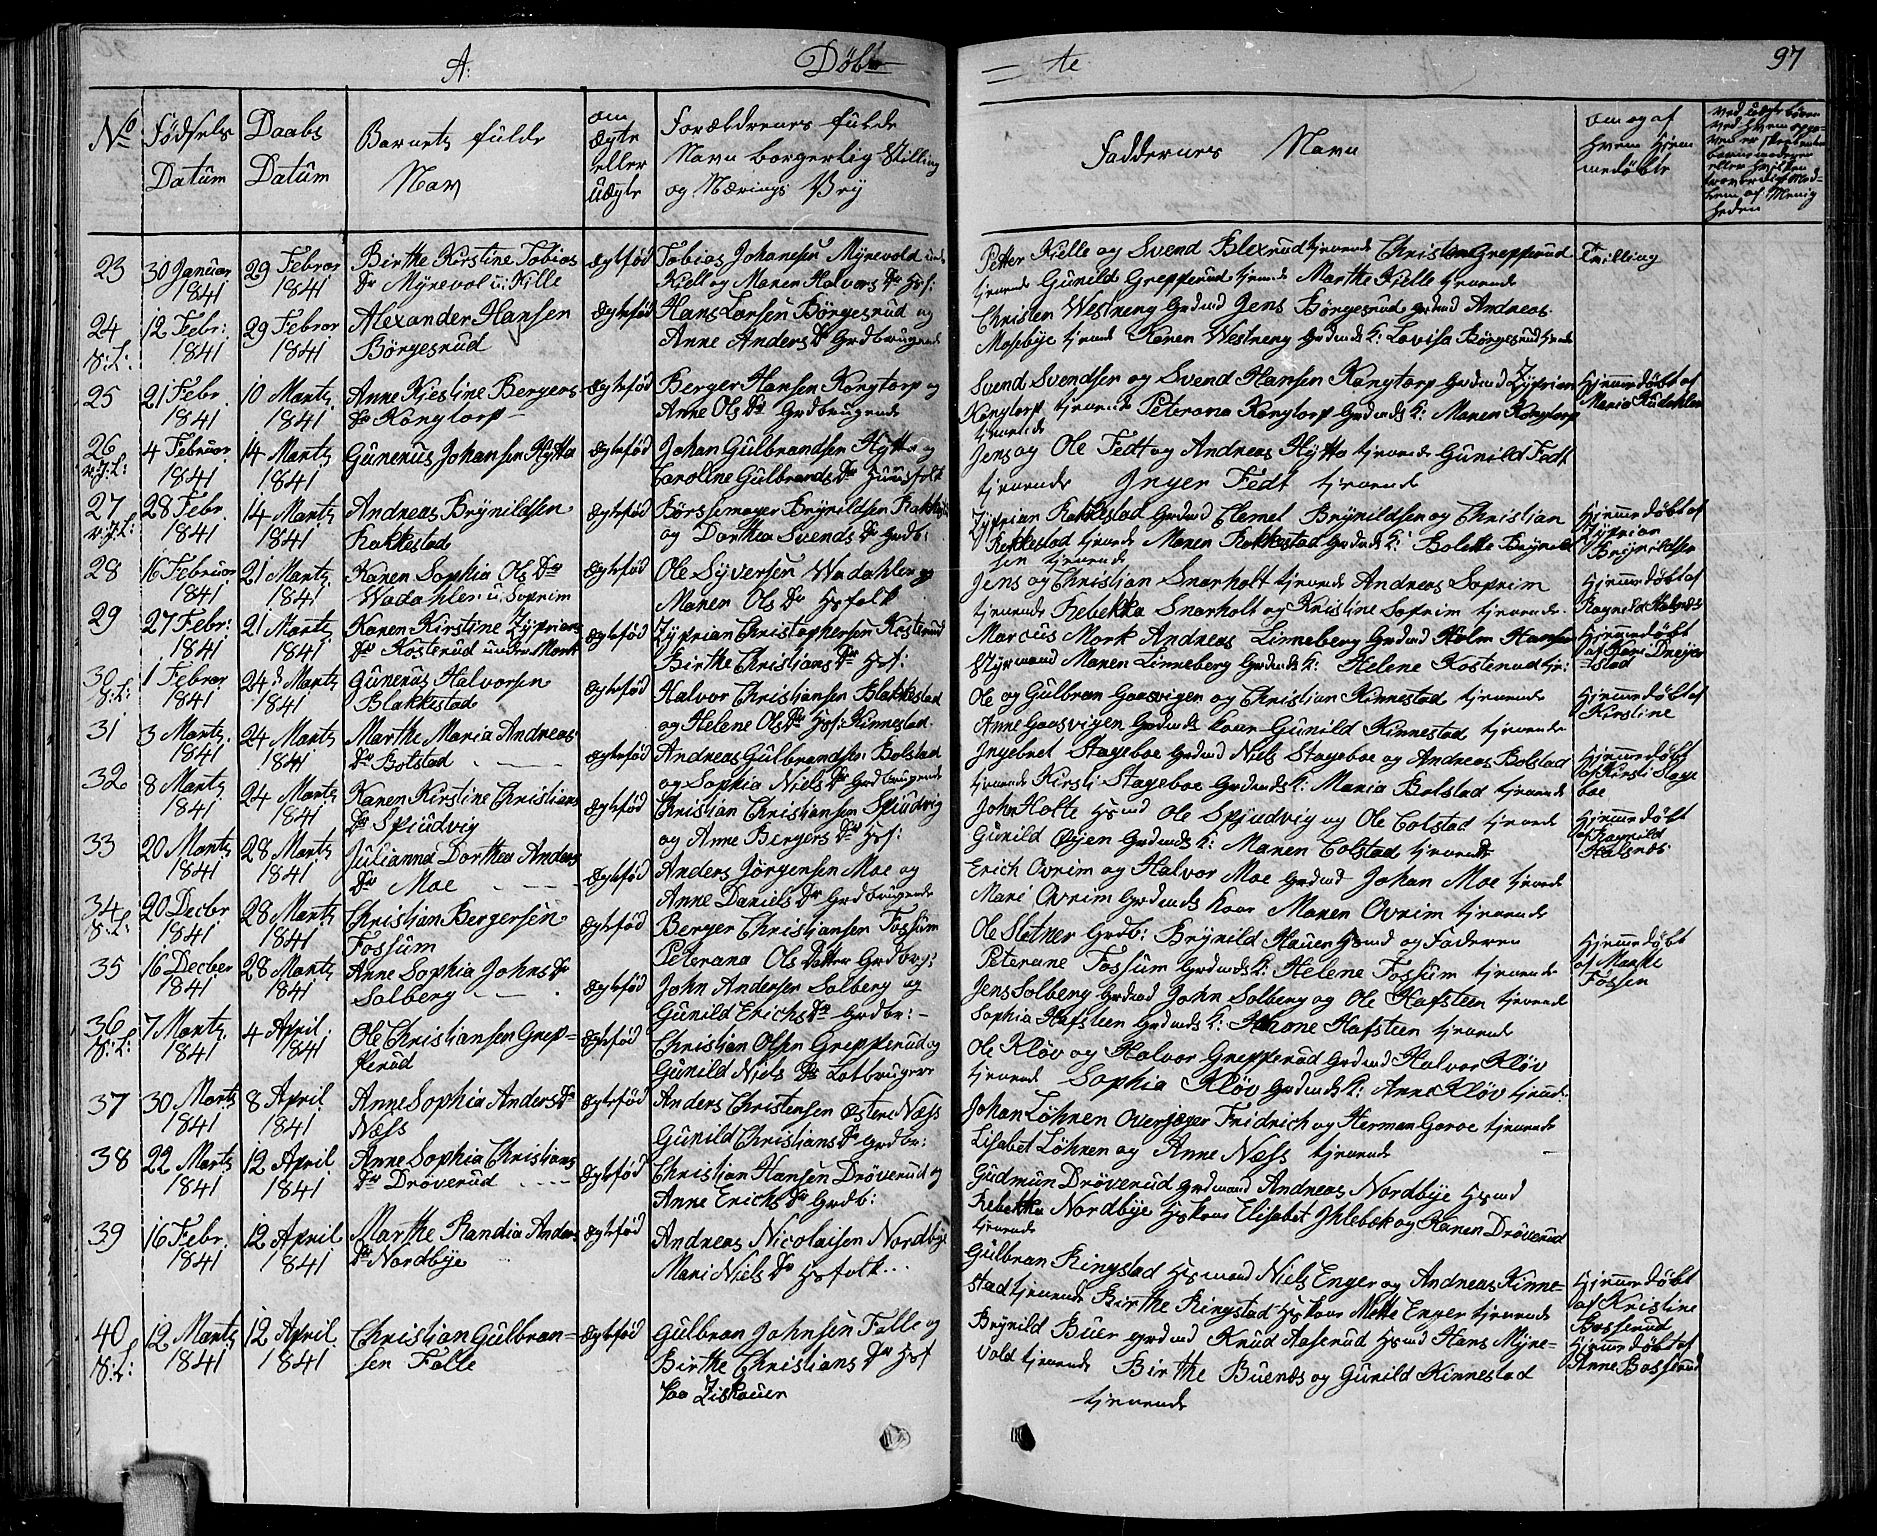 A.
Døbte
97
No
Fødsels Datum
Daabs Datum
Barnets fulde Nav
om Ægte eller Uægte
Forældrenes fulde Navn borgerlig Stilling og Nærings Vej
Faddernes Navn
om og af hvem hjemmedøbte
23 30 Januar 1841 29 Februar 1841 Birthe Kirstine Tobias Dr Myrevol u: Kille Ægtefød Tobias Johansen Myrevold under Kiell og Maren Halvors Dr Hsf:
Petter Kielle og Svend Blexrud tjenende Christian Grepperud tjenende Gunild Grepperud tjenende Marthe Kjelle tjenende
Tvilling
24 V:L: 12 Febr: 1841 29 Februar 1841 Alexander Hansen Børgesrud Ægtefød Hans Larsen Børgesrud og Anne Anders Dr Grdbrugende
Christen Westreng Grdmd Jens Børgesrud Grdmd Andreas Mosebye tjende Karen Westreng Grdmds K: Lovisa Børgesrud tjende
25 21 Febr. 1841 10 Martz 1841 Anne Kiestine Bergers Dr Kongtorp Ægtefød Berger Hansen Kongtorp og Anne Ols Dr Grdbrugende
Svend Svendsen og Svend Hansen Kongtorp Grdmd Zyprian Kongtorp tjenende Peterana Kongtorp Grdmds K: Maren Kongtorp tjenende
Hjemmedøbt af Maria Kudahlen
26 4 Februar 1841 14 Martz 1841 Gunerius Johansen Hytta Ægtefød Johan Gulbrandsen Hytta og Caroline Gulbrands Dr Huusfolk
Jens og Ole Fedt og Andreas Hytta tjenende Gunild Fedt tjenende Inger Fedt tjenende
27 28 Febr. 1841 14 Martz 1841 Andreas Brynildsen Rakkestad Ægtefød Børssemager Brynildsen Rakkestad og Dorthea Svends Dr Grdb:
Zyprian Rakkestad Grdmd Clemet Brynildsen og Christian Rekkestad tjende Maren Rakkestad Grdmds K: Bolette Brynildsen tjenende
Hjemmedøbt af Zyprian Brynildsen
28 16 Februar 1841 21 Martz 1841 Karen Sophia Ols Dr Wadahlen u: Soprim Ægtefød Ole Syversen Wadahlen og Maren Ols Dr Hsfolk
Jens og Christian Snarholt tjenende Andreas Soprim tjenende Rebekka Snarholt og Kristine Soprim tjenende
Hjemmedøbt af Ragnild Halsnæs
29 27 Febr: 1841 21 Martz 1841 Karen Kirstine Zyprians Dr Kosterud under Mork Ægtefød Zyprian Christophersen Kosterud Birthe Christians Dr Hsf:
Marcus Mork Andreas Linneberg Grdmd Holm Hansen Styrmand Maren Linneberg Grdmds K: Helene Kosterud tj:
Hjemmedøbt af Kari Drejerstad
30 V:L: 1 Febrar 1841 24 Martz 1841 Gunerius Halvorsen Blakkestad Ægtefød Halvor Christiansen Blakkestad og Helene Ols Dr Hsf: Kinnestad
Ole og Gulbran Gaasvigen og Christian Kinnestad tjenende Anne Gaasvigen Grdmds Kaar Gunild Kinnestad tjenende
Hjemmedøbt af Kirstine
31 3 Martz 1841 24 Martz 1841 Marthe Maria Andreas Dr Bolstad Ægtefød Andreas Gulbrandsen Bolstad og Sophia Niels Dr Grdbrugende
Ingebret Stageboe Grdmd Niels Stageboe og Andreas Bolstad tjenende Kirsti Stageboe Grdmds K: Maria Bolstad tjenende
Hjemmedøbt af Kirsti Stageboe
32 8 Martz 1841 24 Martz 1841 Karen Kirstine Christians Dr Spiudvig Ægtefød Christian Christiansen Spiudvig og Anne Bergers Dr Hsf:
John Holte Hsmd Ole Spjudvig og Ole Colstad tjende Gunild Øijen Grdmds K: Maren Colstad tjenende
Hjemmedøbt af Ragnild Halsnæs
33 20 Martz 1841 28 Martz 1841 Julianna Dorthea Anders Dr Moe Ægtefød Anders Jørgensen Moe og Anne Daniels Dr Grdbrugende
Erich Ovrim og Halvor Moe Grdmd Johan Moe tjende Mari Ovrim Grdmds Kaar Maren Ovrim tjenende
34 V:L: 20 Decbr 1841 28 Martz 1841 Christian Bergersen Fossum Ægtefød Berger Christiansen Fossum Peterana Ols Datter Grdbrg:
Ole Sletner Grdb: Brynild Hauen Hsmd og Faderen Peterane Fossum Grdmds K: Helene Fossum tjenende
Hjemmedøbt af Marthe Fossen
35 16 Decber 1841 28 Martz 1841 Anne Sophia Johns Dr Solberg Ægtefød John Andersen Solberg og Gunild Erichs Dr Grdbr:
Jens Solberg Grdmd John Solberg og Ole Hafsteen tjenende Sophia Hafsteen Grdmds K: Johone Hafsteen tjenende
36 V:L: 7 Martz 1841 4 April 1841 Ole Christiansen Grepperud Ægtefød Christian Olsen Grepperud og Gunild Niels Dr Lotbrugere
Ole Kløv og Halvor Grepperud Grdmd Halvor Kløv tjenende Sophia Kløv Grdmds K: Anne Kløv tjende
37 30 Martz 1841 8 April 1841 Anne Sophia Anders Dr Næss Ægtefød Anders Christensen Østere Næss Gunild Christians Dr Grdbr:
Johan Løhnen Overjeger Fridrich og Herman Goroe tjenende Lisabet Løhnen og Anne Næss tjenende
38 22 Martz 1841 12 April 1841 Anne Sophia Christians Dr Drøverud Ægtefød Christian Hansen Drøverud og Anne Erichs Dr Grdb:
Gudmun Drøverud Grdmand Andreas Nordbye Hsmd Rebekka Nordbye Hskone Elisabet Ihlebæk og Karen Drøverud tjenende
39 16 Febr. 1841 12 April 1841 Marthe Randia Anders Dr Nordbye Ægtefød Andreas Nicolaisen Nordbye Mari Niels Dr Hsfolk
Gulbran Ringstad Hsmand Niels Enger og Andreas Kinnestad tjenende Birthe Ringstad Hskone Mette Enger tjenende
Hjemmedøbt af Kristine Bosserud
40 V:L: 12 Martz 1841 12 April 1841 Christian Gulbransen Falle Ægtefød Gulbran Johnsen Falle og Birthe Christians Dr Hsf
Brynild Buer Grdmd Knud Aaserud Hsmd Hans Myrevold tjenende Birthe Buenæs og Gunild Kinnestad tjenende
Hjemmedøbt af Anne Bosserud